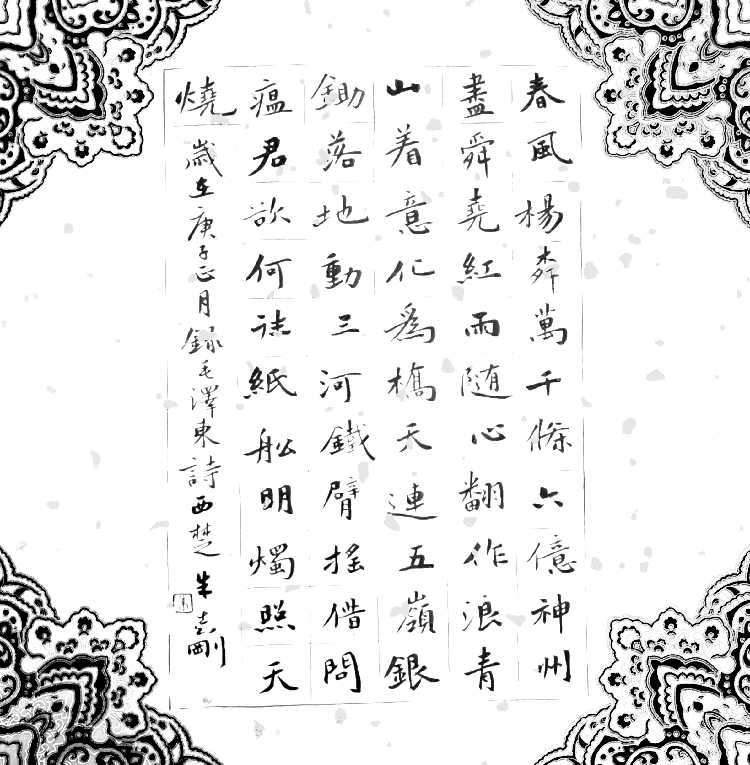 春風楊柳萬千條六億神州
盡舜堯紅雨随心翻作浪青
山着意化爲橋天連五嶺銀
鋤落地動三河鐵臂搖借問
瘟君欲何往紙舩明燭照天
燒
歲在庚子正月録毛澤東詩西楚朱志剛